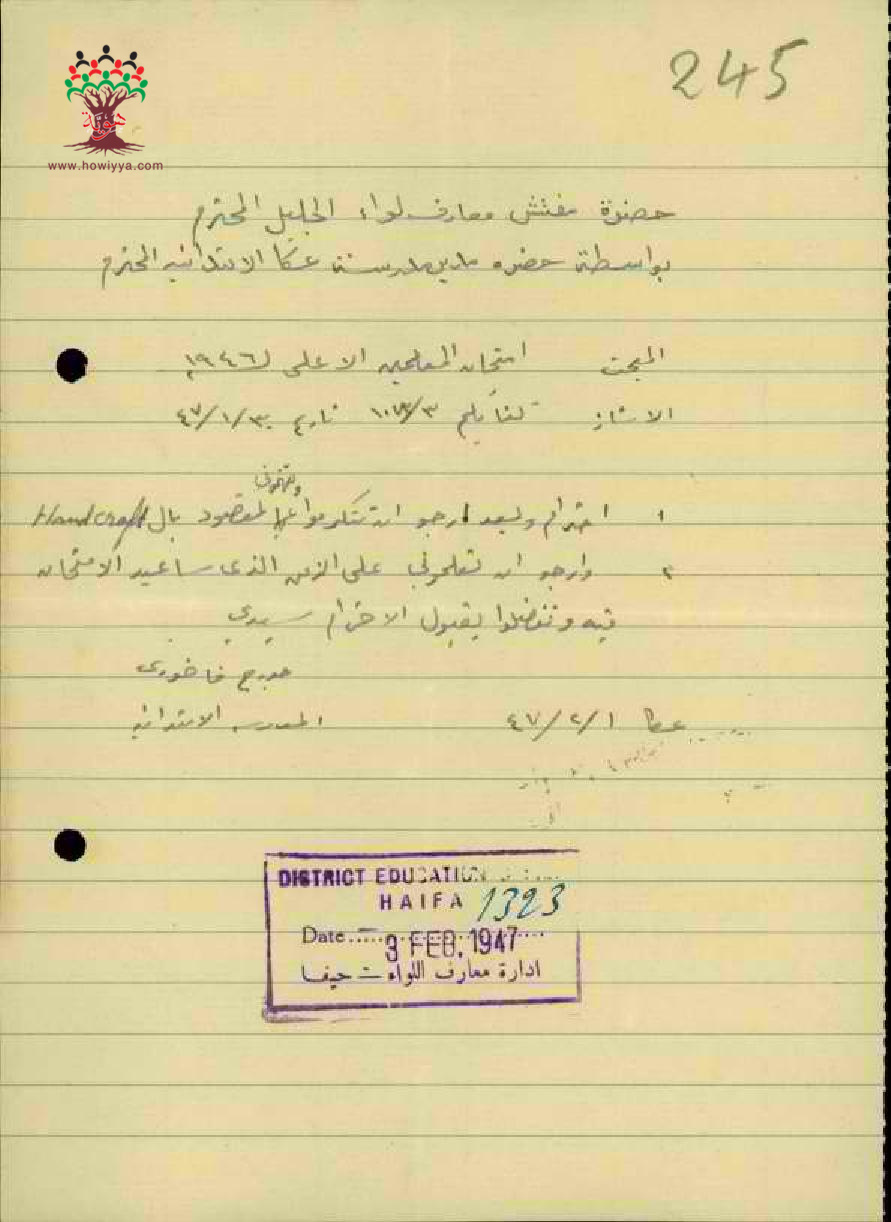 245
هويّة
www.howiyya.com
حضرة مفتش معارف لواء الجليل المحترم
بواسطة حضره مدير مدرسة عكا الابتدائيه المحترم
المبحث امتحان المعلمين الاعلى ل ١٩٤٦
تاريخ ٤٧/١/٣٠
وتفهموني
١ احترام وبعد ارجو ان تتكرموا المقصود بال Handcraft
٢ وارجو ان تعلموني على الزمن الذي ساعيد الامتحان
فيه وتفضلوا بقبول الاحترام سيدي
جورج فاخوري
عكا ٤٧/٢/١ المدرسه الابتدائيه
DISTRICT EDUCATION
HAIFA 1323
Date 3 FEB. 1947
ادارة معارف اللواء – حيفا